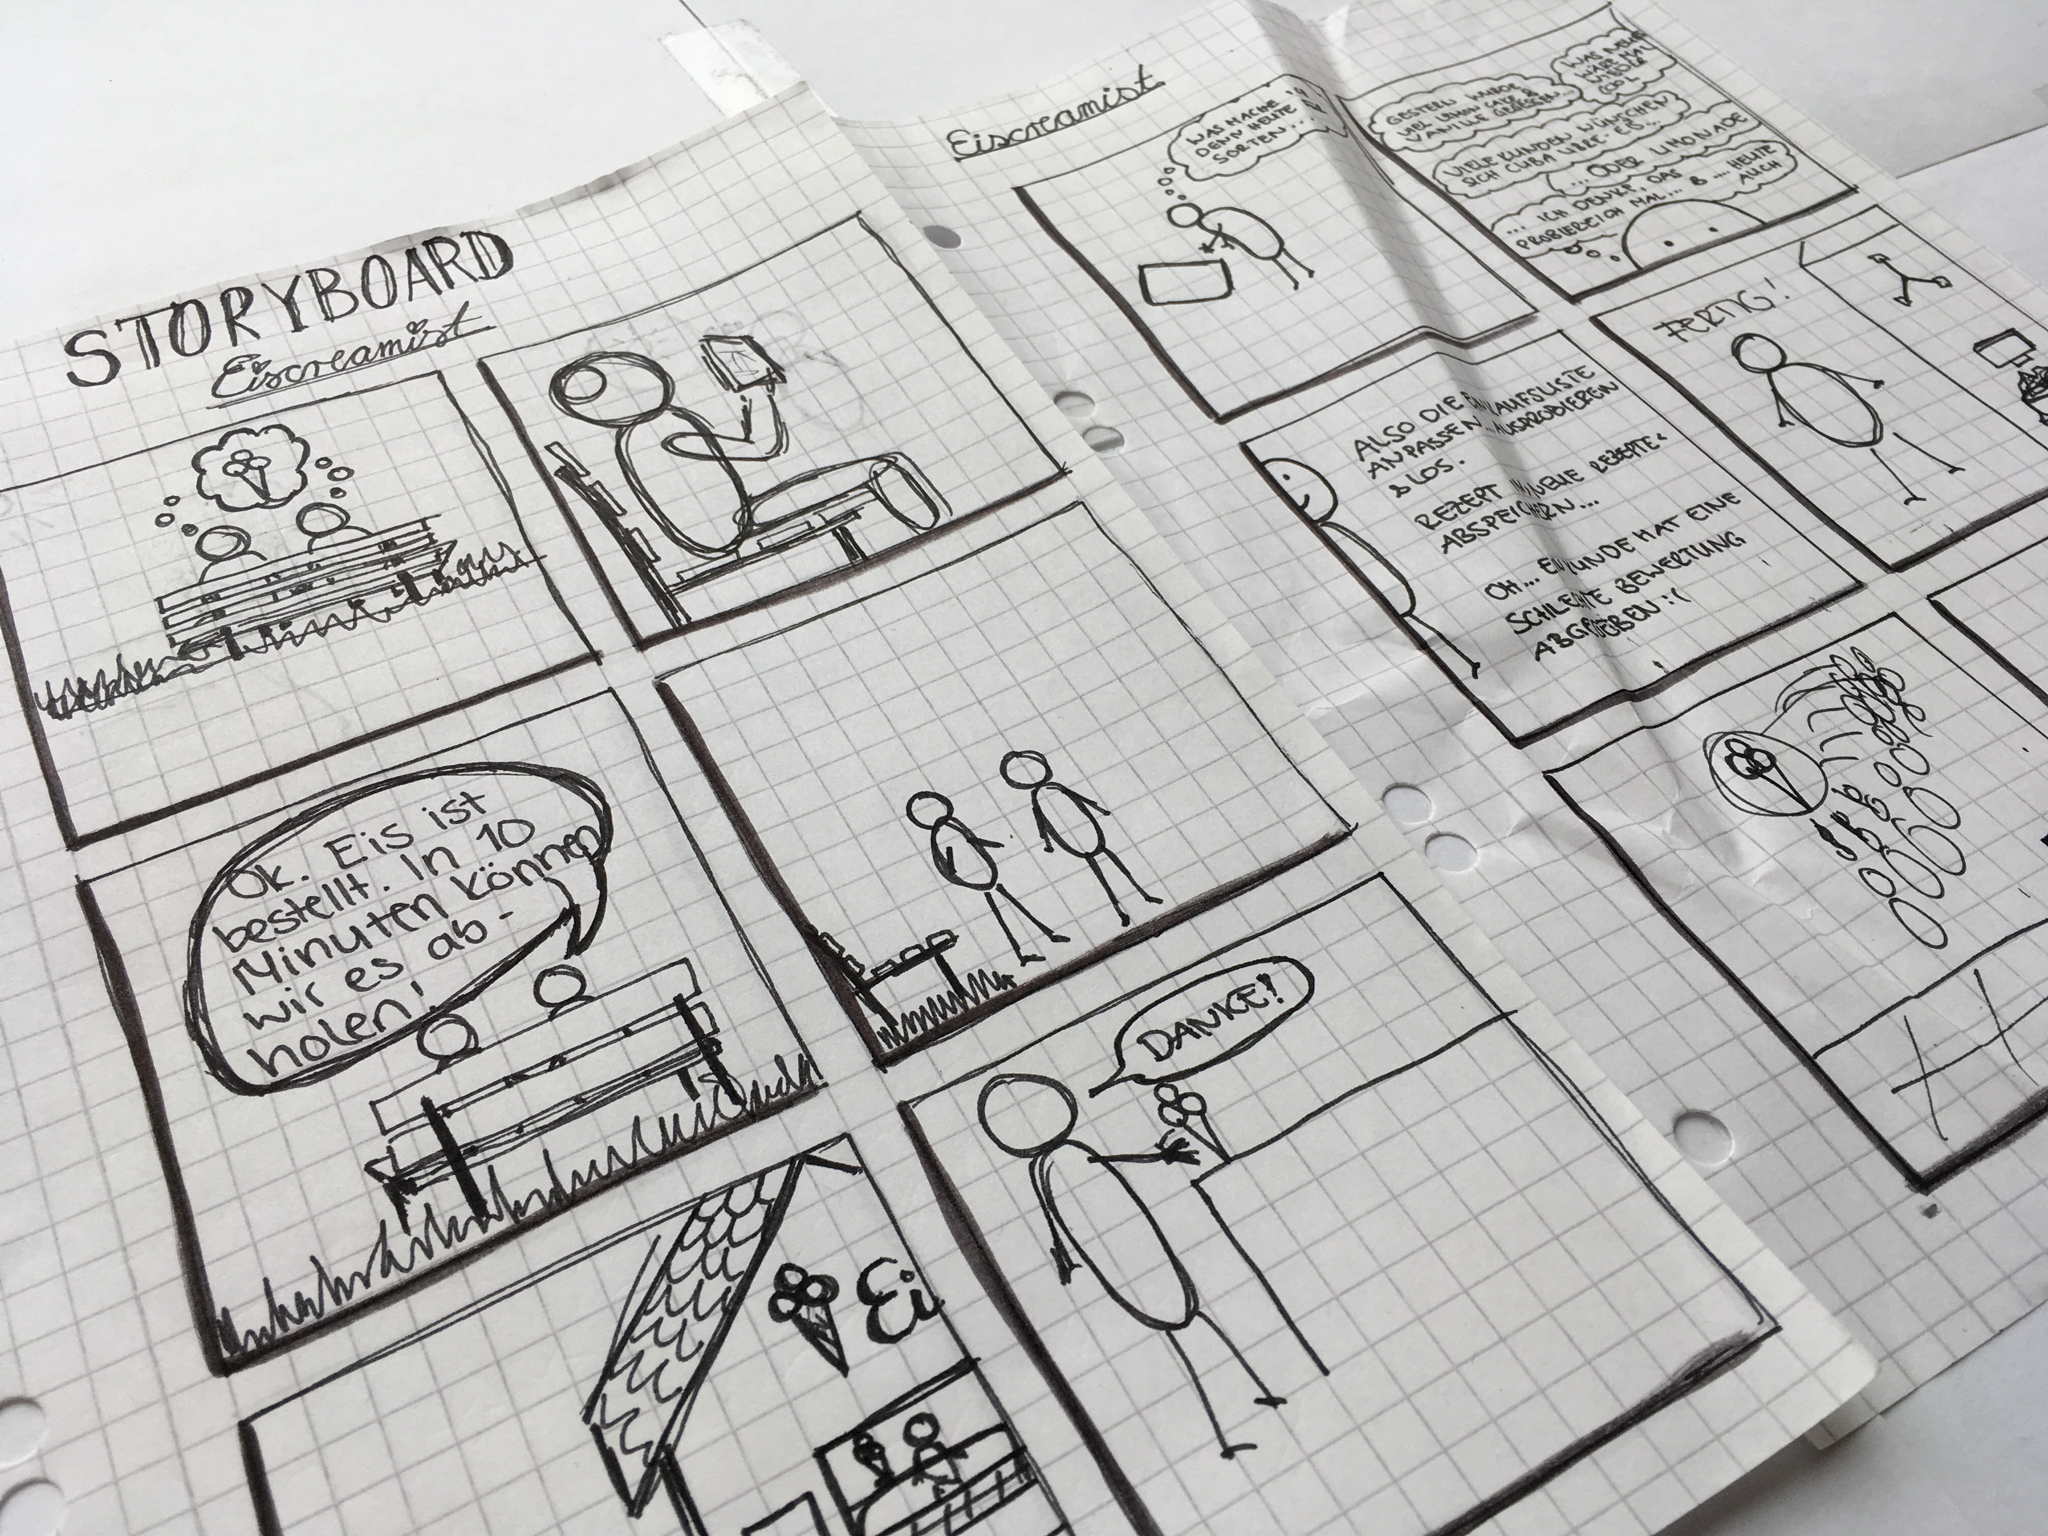 STORYBOARD
Eiscreamist
Ok. Eis ist
bestellt. In 10
Minuten können
wir es ab-
holen!
Ei
DANKE!
Eiscreamist
WAS MACHE
DENN HEUTE
SORTEN...
GESTERN WURDE
VIEL LEMON CAKE &
VANILLE GEGESSEN...
WAS NEUES
WÄRE MAL
WIEDER
COOL
VIELE KUNDEN WÜNSCHEN
SICH CUBA LIBRE-EIS...
... ODER LIMONADE
... ICH DENKE, DAS
PROBIERE ICH MAL... & .... HEUTE
AUCH
ALSO DIE EINKAUFSLISTE
ANPASSEN... AUSPROBIEREN
& LOS.
REZEPT IN "NEUE REZEPTE"
ABSPEICHERN...
OH... EIN KUNDE HAT EINE
SCHLECHTE BEWERTUNG
ABGEGEBEN :(
FERTIG!